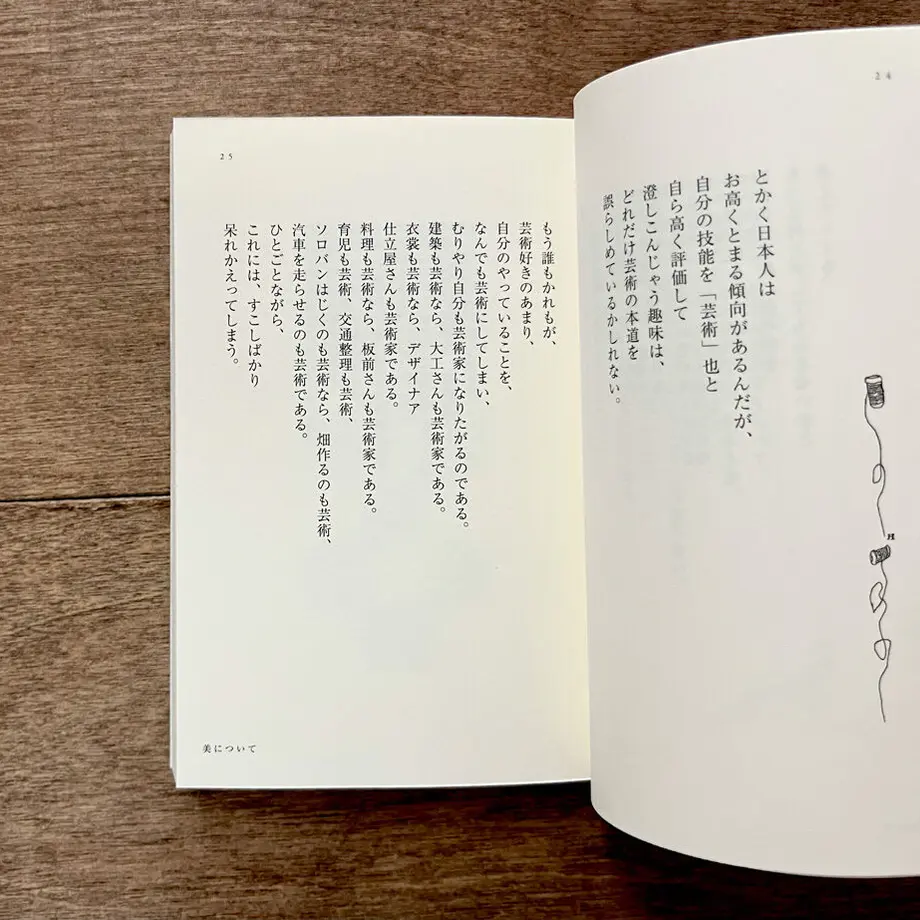 24
とかく日本人は
お高くとまる傾向があるんだが、
自分の技能を「芸術」也と
自ら高く評価して
澄しこんじゃう趣味は、
どれだけ芸術の本道を
誤らしめているかしれない。
25
もう誰もかれもが、
芸術好きのあまり、
自分のやっていることを、
なんでも芸術にしてしまい、
むりやり自分も芸術家になりたがるのである。
建築も芸術なら、大工さんも芸術家である。
衣裳も芸術なら、デザイナア
仕立屋さんも芸術家である。
料理も芸術なら、板前さんも芸術家である。
育児も芸術、交通整理も芸術、
ソロバンはじくのも芸術なら、畑作るのも芸術、
汽車を走らせるのも芸術である。
ひとごとながら、
これには、すこしばかり
呆れかえってしまう。
美について